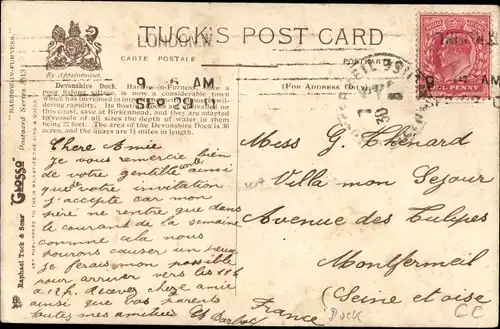 TUCK'S POST CARD
LONDON.W
CARTE POSTALE
POSTKARTE
By Appointment.
(FOR ADDRESS ONLY.)
9. 15 AM
SEP 29 11
Devonshire Dock. Barrow-in-Furness, once a
poor fishing village, is now a considerable town
which has increased in
rapidity. Its floating
space, save at Birkenhead, and they are adapted
to vessels of all sizes the depth of water in them
being 22 feet. The area of the Devonshire Dock is 30
acres, and the quays are 1½ miles in length.
"BARROW-IN-FURNESS."
Postcard Series
"GLOSSO"
Raphael Tuck & Sons'
ART PUBLISHERS TO THEIR MAJESTIES THE KING & QUEEN
ONE PENNY
Chère Amie
je vous remercie bien
de votre gentille carte ainsi
que de votre invitation
j'accepte car mon
père ne rentre que dans
le courant de la semaine
comme cela nous
pourrons causer un peu
je ferais mon possible
pour arriver vers les 11 h
à 12 h. Recevez chère amie
ainsi que vos parents
toutes mes amitiés
Miss G. Thénard
Villa mon Séjour
Avenue des Tulipes
Montfermeil
(Seine et oise
France)
Dock
CC